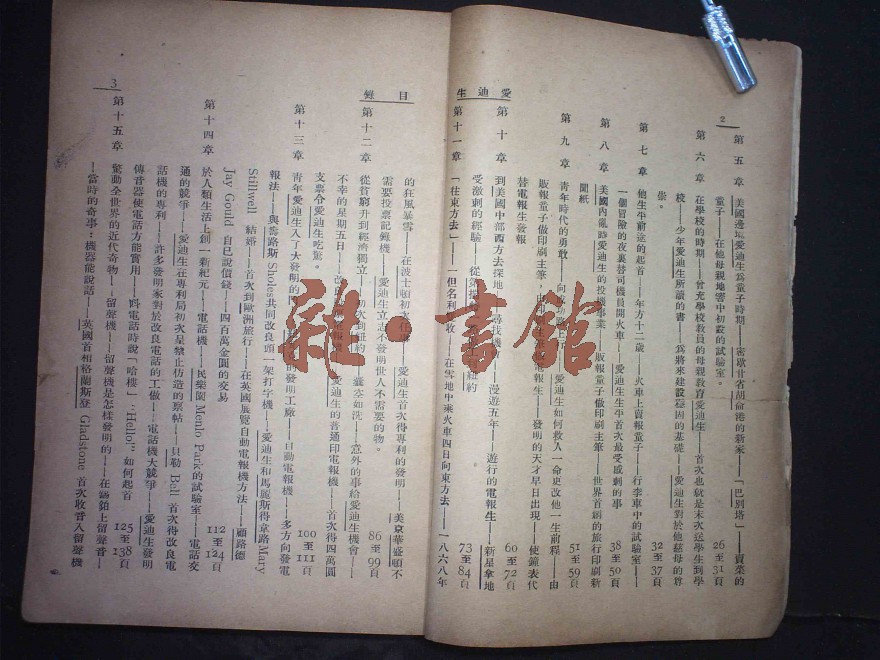 2
愛迪生
第五章 美國邊境愛迪生為童子時期——密歇甘省胡倫港的新家——「巴別塔」——賣菜的
童子——在他母親地窖中初設的試驗室。 26至31頁
第六章 在學校的時期——曾充學校教員的母親教育愛迪生——首次也就是末次送學生到學
校——少年愛迪生所讀的書——為將來建設穩固的基礎——愛迪生對於他慈母的尊
崇。 32至37頁
第七章 他生平前途的起首——年方十二歲——火車上賣報童子——行李車中的試驗室——
一個冒險的夜裏替司機員開火車——愛迪生生平首次最受感刺的事 38至50頁
第八章 美國內亂時愛迪生的投機事業——販報童子做印刷主筆——世界首創的旅行印刷新
聞紙 51至59頁
第九章 青年時代的勇敢——向成功 愛迪生如何救人一命更改他一生前程——由
販報童子做印刷主筆,由印 電報生——發明的天才早日出現——使鐘表代
替電報生發報 60至72頁
第十章 到美國中部西方去探地——尋找機會——漫遊五年——遊行的電報生——新星拿地
受激刺的經驗——從 紐約 73至84頁
第十一章 「往東方去」——一但名利 收——在雪地中乘火車四日向東方去——一八六八年
目錄
3
的狂風暴雪——在波士頓初次任 ——愛迪生首次得專利的發明——美京華盛頓不
需要投票記錄機——愛迪生立志不發明世人不需要的物。 86至99頁
第十二章 從貧窮升到經濟獨立——初次到紐約——囊空如洗——意外的事給愛迪生機會——
不幸的星期五日——改良 報機——愛迪生的普通印電報機——首次得四萬圓
支票令愛迪生吃驚。 100至111頁
第十三章 青年愛迪生入了大發明的 的發明工廠——自動電報機——多方向發電
報法——與壽路斯 Sholes 共同改良頭一架打字機——愛迪生和馬麗斯得拿路 Mary
Stillwell 結婚——首次到歐洲旅行——在英國展覽自動電報機方法——顧路德
Jay Gould 自已說償錢——四百萬金圓的交易 112至124頁
第十四章 於人類生活上創一新紀元——電話機——民樂園 Menlo Park 的試驗室——電話交
通的競爭——愛迪生在專利局初次呈禁止仿造的禀帖——貝勒 Bell 首次得改良電
話機的專利——許多發明家對於改良電話的工做——電話機大競爭——愛迪生發明
傳音器使電話方能實用——叫電話時說「哈樓」:"Hello" 如何起首 125至138頁
第十五章 驚動全世界的近代奇物——留聲機——留聲機是怎樣發明的——在錫鉑上留聲音—
—當時的奇事:機器能說話——英國首相格蘭斯登 Gladstone 首次收音入留聲機
雜·書館